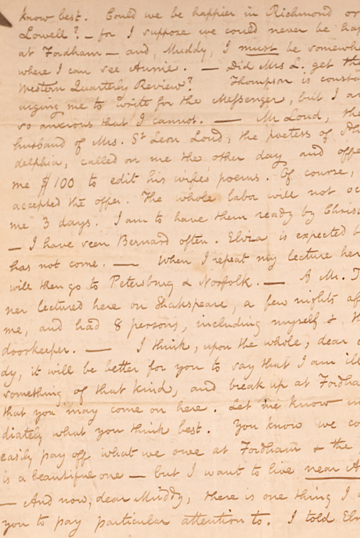 know best. Could we be happier in Richmond or
Lowell? — for I suppose we could never be hap
at Fordham — and, Muddy, I must be somewhe
where I can see Annie. — Did Mrs L. get th
Western Quarterly Review? Thompson is const
urging me to write for the Messenger, but I am
so anxious that I cannot. — Mr Loud, the
husband of Mrs. St Leon Loud, the poetess of
delphia, called on me the other day and offe
me $100 to edit his wife's poems. Of course,
accepted the offer. The whole labor will not oc
me 3 days. I am to have them ready by Chris
— I have seen Bernard often. Eliza is expected b
has not come. — When I repeat my lecture her
will then go to Petersburg & Norfolk. — A Mr. T
ner lectured here on Shakspeare, a few nights af
me, and had 8 persons, including myself & th
doorkeeper. — I think, upon the whole, dear
dy, it will be better for you to say that I am ill
something of that kind, and break up at Fordha
that you may come on here. Let me know
diately what you think best. You know we co
easily pay off what we owe at Fordham & the
is a beautiful one — but I want to live near A
— And now, dear Muddy, there is one thing I
you to pay particular attention to. I told El